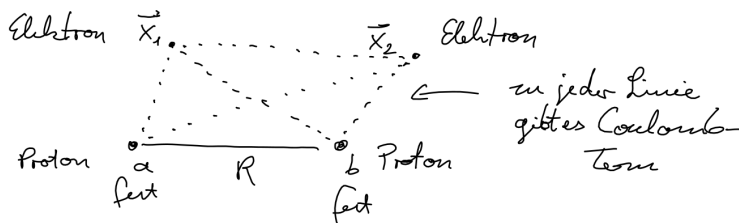 Elektron x⃗₁ x⃗₂ Elektron
zu jeder Linie
gibt es Coulomb-
Term
Proton a R b Proton
fest fest